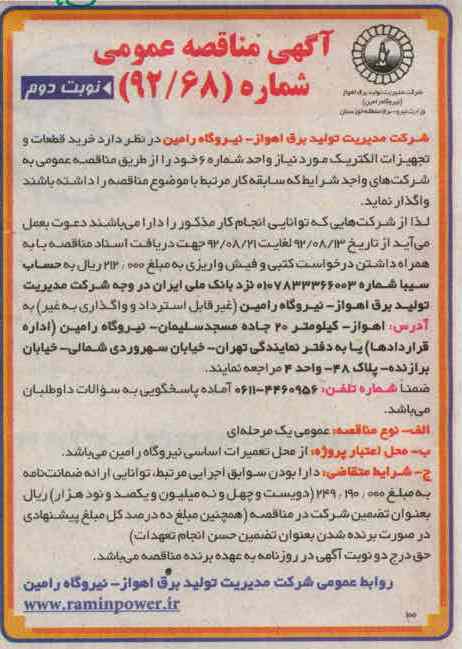 آگهی مناقصه عمومی
شماره (۹۲/۶۸)
نوبت دوم
شرکت مدیریت تولید برق اهواز
(نیروگاه رامین)
وزارت نیرو- برق منطقه خوزستان
شرکت مدیریت تولید برق اهواز- نیروگاه رامین در نظر دارد خرید قطعات و
تجهیزات الکتریک مورد نیاز واحد شماره ۶ خود را از طریق مناقصه عمومی به
شرکت‌های واجد شرایط که سابقه کار مرتبط با موضوع مناقصه را داشته باشند
واگذار نماید.
لذا از شرکت‌هایی که توانایی انجام کار مذکور را دارا می‌باشند دعوت بعمل
می‌آید از تاریخ ۹۲/۰۸/۱۳ لغایت ۹۲/۰۸/۲۱ جهت دریافت اسناد مناقصه با به
همراه داشتن درخواست کتبی و فیش واریزی به مبلغ ۲۱۲,۰۰۰ ریال به حساب
سیبا شماره ۰۱۰۷۸۳۳۳۶۶۰۰۳ نزد بانک ملی ایران در وجه شرکت مدیریت
تولید برق اهواز- نیروگاه رامین (غیر قابل استرداد و واگذاری به غیر) به
آدرس: اهواز- کیلومتر ۲۰ جاده مسجدسلیمان- نیروگاه رامین (اداره
قراردادها) یا به دفتر نمایندگی تهران- خیابان سهروردی شمالی- خیابان
برازنده- پلاک ۴۸- واحد ۴ مراجعه نمایند.
ضمناً شماره تلفن: ۴۴۶۰۹۵۶-۰۶۱۱ آماده پاسخگویی به سؤالات داوطلبان
می‌باشد.
الف- نوع مناقصه: عمومی یک مرحله‌ای
ب- محل اعتبار پروژه: از محل تعمیرات اساسی نیروگاه رامین می‌باشد.
ج- شرایط متقاضی: دارا بودن سوابق اجرایی مرتبط، توانایی ارائه ضمانت‌نامه
به مبلغ ۲۴۹,۱۹۰,۰۰۰ (دویست و چهل و نه میلیون و یکصد و نود هزار) ریال
بعنوان تضمین شرکت در مناقصه (همچنین مبلغ ده درصد کل مبلغ پیشنهادی
در صورت برنده شدن بعنوان تضمین حسن انجام تعهدات)
حق درج دو نوبت آگهی در روزنامه به عهده برنده مناقصه می‌باشد.
روابط عمومی شرکت مدیریت تولید برق اهواز- نیروگاه رامین
www.raminpower.ir
۱۰۰